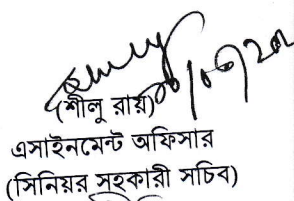 (শীলু রায়)
এসাইনমেন্ট অফিসার
(সিনিয়র সহকারী সচিব)